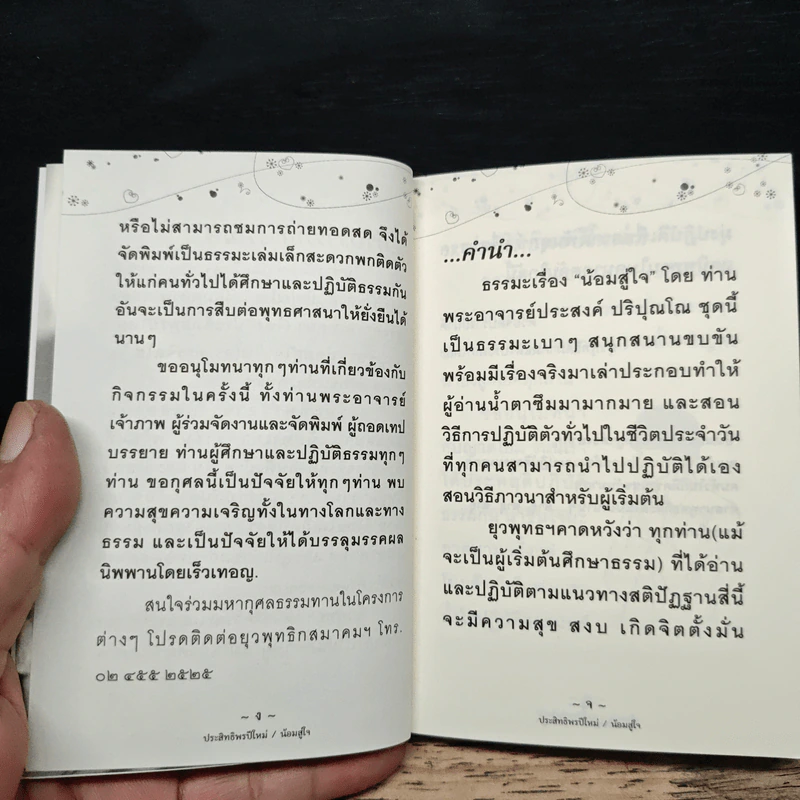 หรือไม่สามารถชมการถ่ายทอดสด จึงได้
จัดพิมพ์เป็นธรรมะเล่มเล็กสะดวกพกติดตัว
ให้แก่คนทั่วไปได้ศึกษาและปฏิบัติธรรมกัน
อันจะเป็นการสืบต่อพุทธศาสนาให้ยั่งยืนได้
นานๆ
ขออนุโมทนาทุกๆท่านที่เกี่ยวข้องกับ
กิจกรรมในครั้งนี้ ทั้งท่านพระอาจารย์
เจ้าภาพ ผู้ร่วมจัดงานและจัดพิมพ์ ผู้ถอดเทป
บรรยาย ท่านผู้ศึกษาและปฏิบัติธรรมทุกๆ
ท่าน ขอกุศลนี้เป็นปัจจัยให้ทุกๆท่าน พบ
ความสุขความเจริญทั้งในทางโลกและทาง
ธรรม และเป็นปัจจัยให้ได้บรรลุมรรคผล
นิพพานโดยเร็วเทอญ.
สนใจร่วมมหากุศลธรรมทานในโครงการ
ต่างๆ โปรดติดต่อยุวพุทธิกสมาคมฯ โทร.
๐๒ ๔๕๕ ๒๕๒๕
~ ง ~
ประสิทธิพรปีใหม่ / น้อมสู่ใจ
...คำนำ...
ธรรมะเรื่อง “น้อมสู่ใจ” โดย ท่าน
พระอาจารย์ประสงค์ ปริปุณโณ ชุดนี้
เป็นธรรมะเบาๆ สนุกสนานขบขัน
พร้อมมีเรื่องจริงมาเล่าประกอบทำให้
ผู้อ่านน้ำตาซึมมามากมาย และสอน
วิธีการปฏิบัติตัวทั่วไปในชีวิตประจำวัน
ที่ทุกคนสามารถนำไปปฏิบัติได้เอง
สอนวิธีภาวนาสำหรับผู้เริ่มต้น
ยุวพุทธฯคาดหวังว่า ทุกท่าน(แม้
จะเป็นผู้เริ่มต้นศึกษาธรรม) ที่ได้อ่าน
และปฏิบัติตามแนวทางสติปัฏฐานสี่นี้
จะมีความสุข สงบ เกิดจิตตั้งมั่น
~ จ ~
ประสิทธิพรปีใหม่ / น้อมสู่ใจ